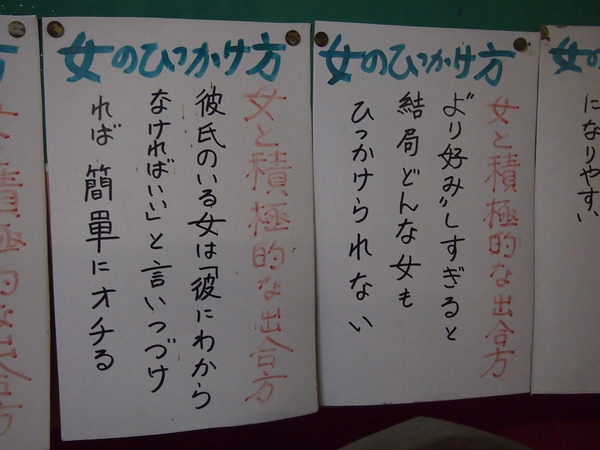 女の
になりやすい
女のひっかけ方
女と積極的な出合方
より好みしすぎると
結局どんな女も
ひっかけられない
女のひっかけ方
女と積極的な出合方
彼氏のいる女は「彼にわから
なければいい」と言いつづけ
れば簡単にオチる
方
女と積極的な出合方